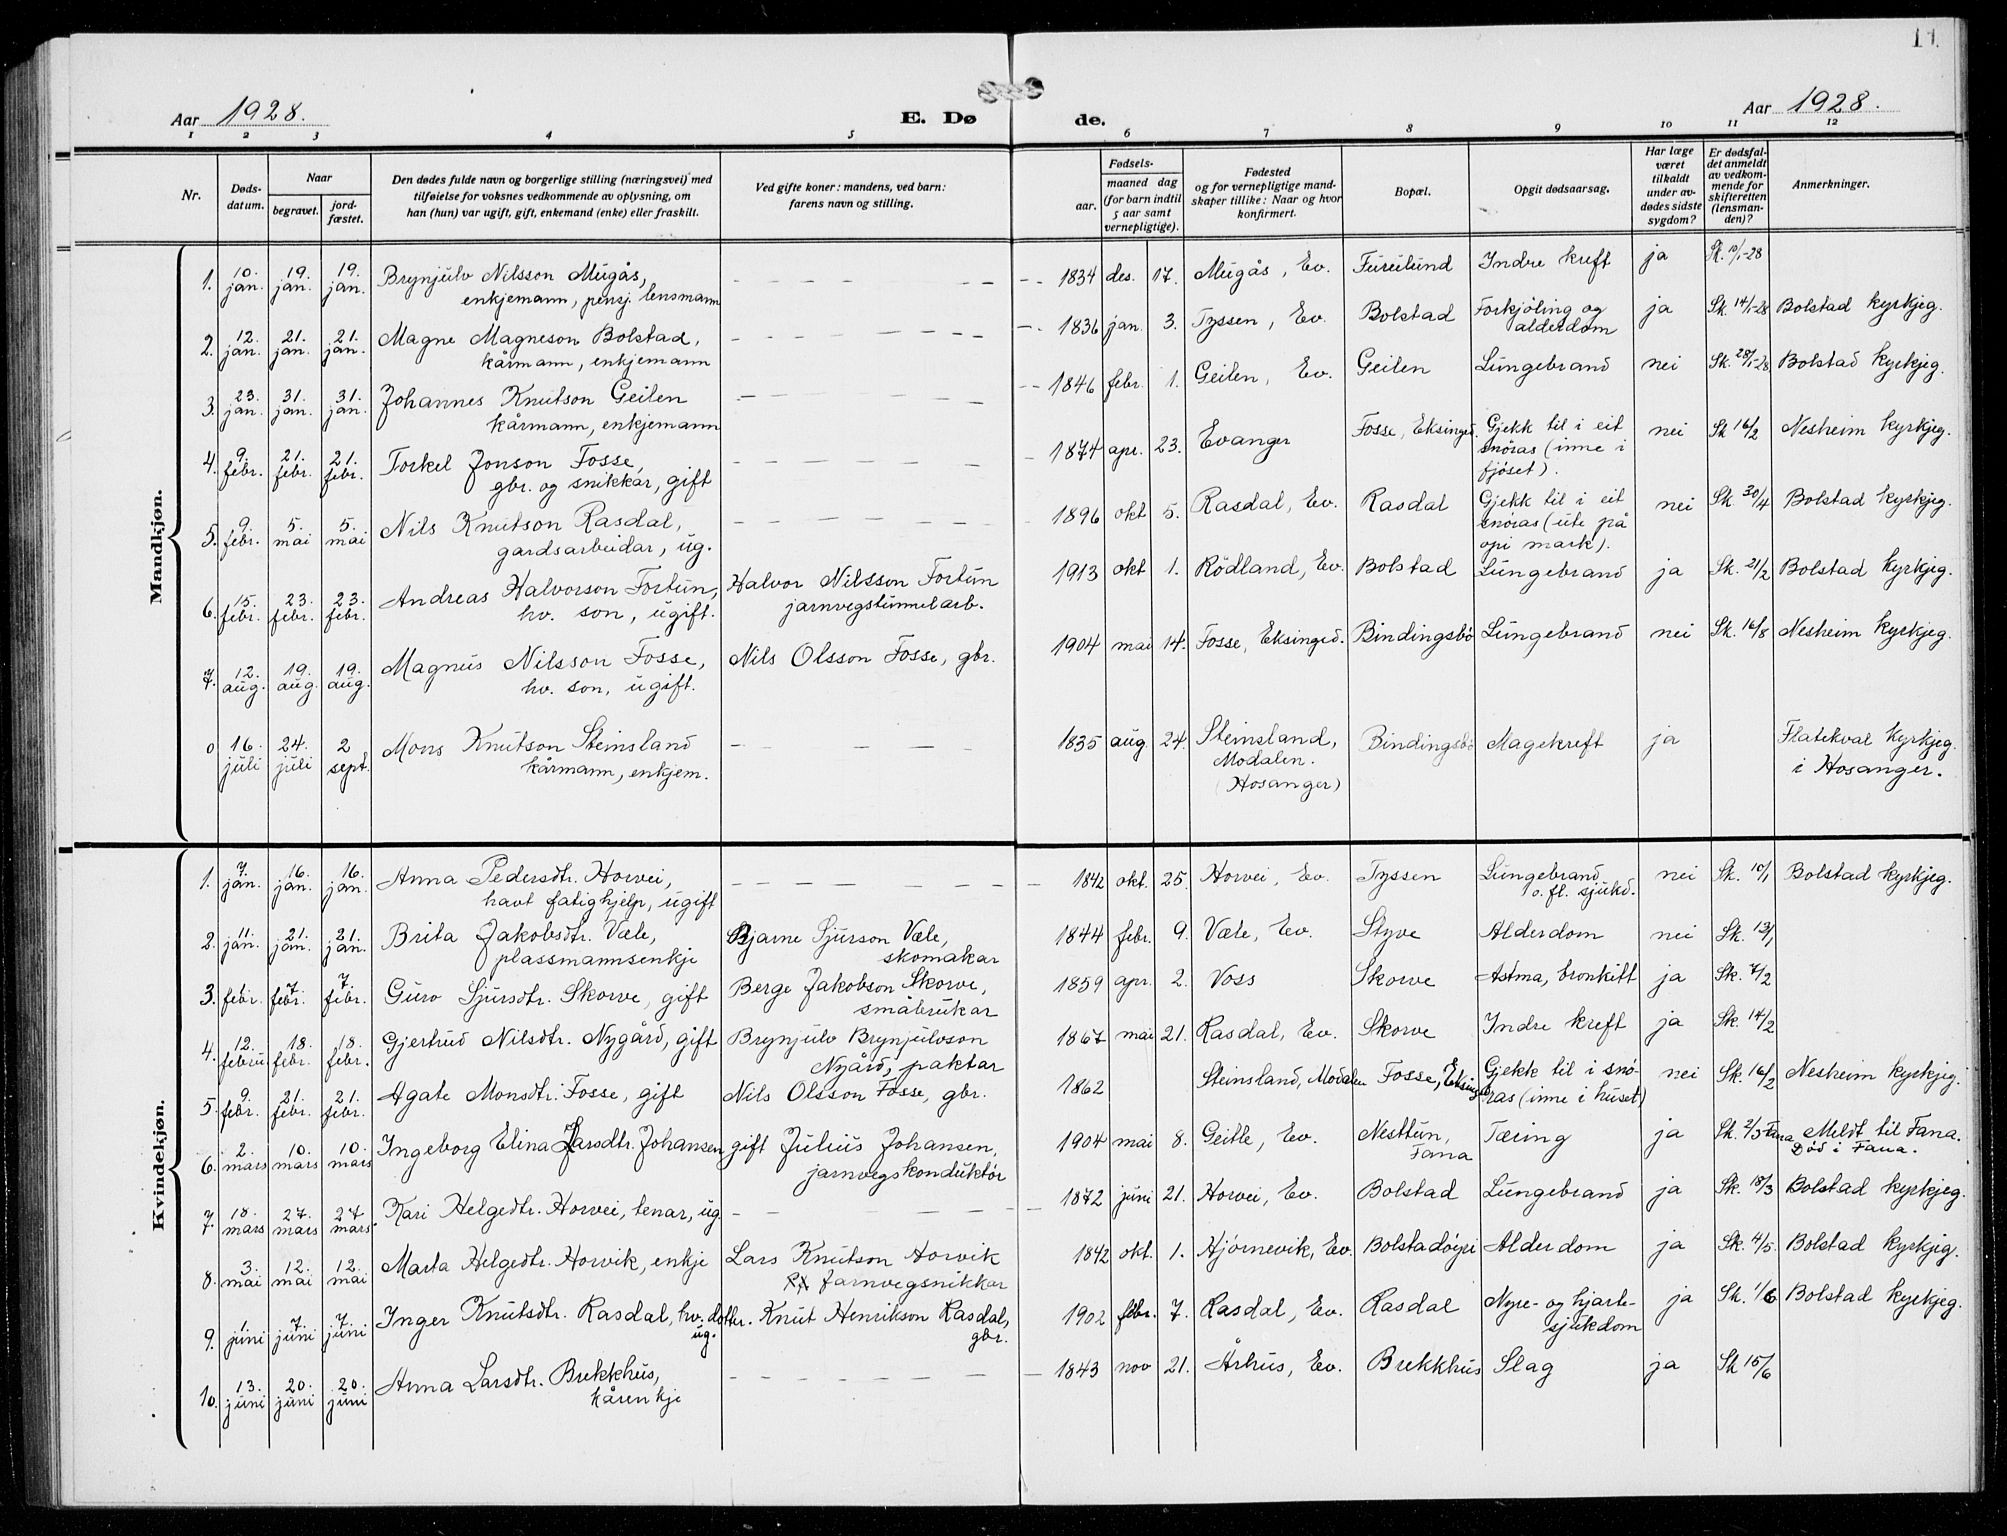 11.
Aar 1928.
E. Døde.
Aar 1928.
1 2 3 4 5 6 7 8 9 10 11 12
Nr.
Døds-
datum.
Naar
begravet.
jord-
fæstet.
Den dødes fulde navn og borgerlige stilling (næringsvei) med
tilføielse for voksnes vedkommende av oplysning, om
han (hun) var ugift, gift, enkemand (enke) eller fraskilt.
Ved gifte koner: mandens, ved barn:
farens navn og stilling.
Fødsels-
aar.
maaned dag
(for barn indtil
5 aar samt
vernepligtige).
Fødested
og for vernepligtige mand-
skaper tillike: Naar og hvor
konfirmert.
Bopæl.
Opgit dødsaarsag.
Har læge
været
tilkaldt
under av-
dødes sidste
sygdom?
Er dødsfal-
det anmeldt
av vedkom-
mende for
skifteretten
(lensman-
den)?
Anmerkninger.
Mandkjøn.
1. 10. jan. 19. jan. 19. jan. Brynjulv Nilsson Mugås, 1834 des. 17. Mugås, Ev. Fureilund Indre kreft ja Sk. 10/1-28
enkjemann, pensj. lensmann
2. 12. jan. 21. jan. 21. jan. Magne Magneson Bolstad, 1836 jan. 3. Tyssen, Ev. Bolstad Forkjöling og ja Sk. 14/1-28 Bolstad kyrkjeg.
kårmann, enkjemann alderdom
3. 23. jan. 31. jan. 31. jan. Johannes Knutson Geilen 1846 febr. 1. Geilen, Ev. Geilen Lungebrand nei Sk. 28/1-28 Bolstad kyrkjeg.
kårmann, enkjemann
4. 9. febr. 21. febr. 21. febr. Torkel Jonson Fosse, 1874 apr. 23. Evanger Fosse, Eksingd. Gjekk til i eit nei Sk 16/2 Nesheim kyrkjeg.
gbr. og snikkar, gift snöras (inne i
fjöset).
5. 9. febr. 5. mai 5. mai Nils Knutson Rasdal, 1896 okt 5. Rasdal, Ev. Rasdal Gjekk til i eit nei Sk 30/4 Bolstad kyrkjeg.
gardsarbeidar, ug. snöras (ute på
opi mark).
6. 15. febr. 23. febr. 23. febr. Andreas Halvorson Fortun, Halvor Nilsson Fortun 1913 okt 1. Rödland, Ev. Bolstad Lungebrand ja Sk. 21/2 Bolstad kyrkjeg.
hv. son, ugift. jarnvegstunnelarb.
7. 12. aug. 19. aug. 19. aug. Magnus Nilsson Fosse, Nils Olsson Fosse, gbr. 1904 mai 14. Fosse, Eksingd. Bindingsbö Lungebrand nei Sk. 16/8 Nesheim kyrkjeg.
hv. son, ugift.
0 16. juli 24. juli 2 sept. Mons Knutson Steinsland 1835 aug. 24. Steinsland, Bindingsbö Magekreft ja Flatekval kyrkjeg.
kårmann, enkjem. Modalen. i Hosanger.
(Hosanger)
Kvindekjøn.
1. 7. jan. 16. jan. 16. jan. Anna Pedersdtr. Horvei, 1842 okt. 25. Horvei, Ev. Tyssen Lungebrand nei Sk. 10/1 Bolstad kyrkjeg.
havt fatighjelp, ugift o. fl. sjukd.
2. 11. jan. 21. jan. 21. jan. Brita Jakobsdtr. Væle, Bjarne Sjurson Væle, 1844 febr. 9. Væle, Ev. Styve Alderdom nei Sk. 13/1
plassmannsenkje skomakar
3. 1. febr. 7. febr. 7. febr. Guro Sjursdtr. Skorve, gift Berge Jakobson Skorve, 1859 apr. 2. Voss Skorve Astma, bronkitt ja Sk. 7/2
småbrukar
4. 12. februu 18. febr. 18. febr. Gjertrud Nilsdtr. Nygård, gift Brynjulv Brynjulvson 1867 mai 21. Rasdal, Ev. Skorve Indre kreft ja Sk. 14/2
Nyård, paktar
5. 9. febr. 21. febr. 21. febr. Agate Monsdtr. Fosse, gift Nils Olsson Fosse, gbr. 1862 Steinsland, Modalen Fosse, Eksingd Gjekk til i snö- nei Sk. 16/2 Nesheim kyrkjeg.
ras (inne i huset)
6. 2. mars 10. mars 10. mars Ingeborg Elina Larsdtr. Johansen gift Julius Johansen, 1904 mai 8. Geitle, Ev. Nesttun, Tæring ja Sk. 2/3 Fana Meldt til Fana.
jarnvegskonduktör Fana Död i Fana.
7. 18. mars 27. mars 27. mars. Kari Helgedtr. Horvei, tenar, ug. 1872 juni 21. Horvei, Ev. Bolstad Lungebrand ja Sk. 18/3 Bolstad kyrkjeg.
8. 3. mai 12. mai 12. mai Marta Helgedtr. Horvik, enkje Lars Knutson Horvik 1842 okt. 1. Hjörnevik, Ev. Bolstadöyri Alderdom ja Sk. 4/5. Bolstad kyrkjeg.
jarnvegsnikkar
9. 1. juni 7. juni 7. juni Inger Knutsdtr. Rasdal, hv. dotter. Knut Henrikson Rasdal, 1902 febr. 7. Rasdal, Ev. Rasdal Nyre- og hjarte- ja Sk. 1/6 Bolstad kyrkjeg.
ug. gbr. sjukdom
10. 13. juni 20. juni 20. juni Anna Larsdtr. Brekkhus, 1843 nov 21. Århus, Ev. Brekkhus Slag ja Sk 15/6
kårenkje